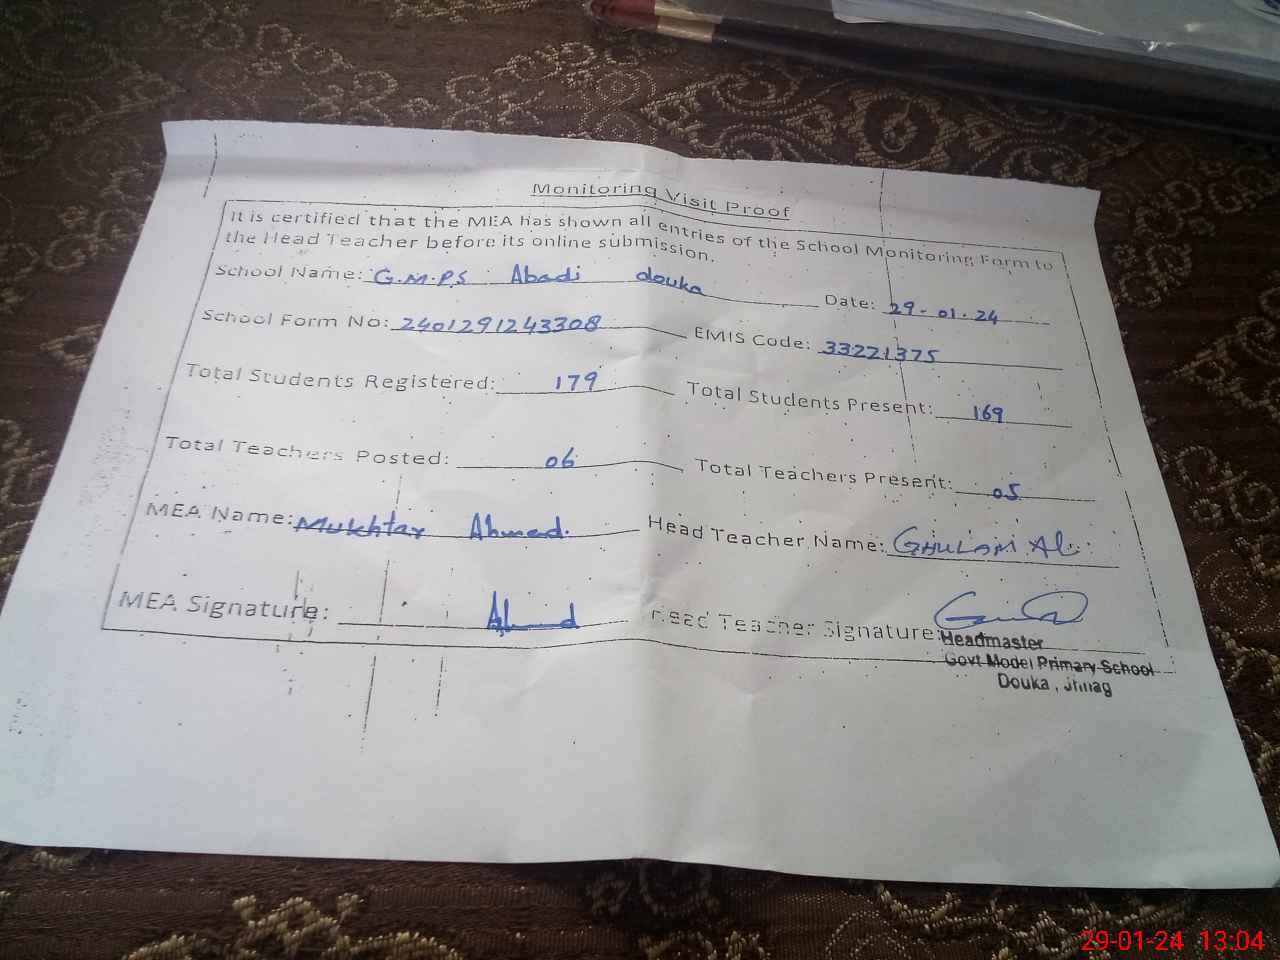 Monitoring Visit Proof
It is certified that the MEA has shown all entries of the School Monitoring Form to
the Head Teacher before its online submission.
School Name: G.M.P.S Abadi douka Date: 29-01-24
School Form No: 2401291243308 EMIS Code: 33221375
Total Students Registered: 179 Total Students Present: 169
Total Teachers Posted: 06 Total Teachers Present: 05
MEA Name: Mukhtar Ahmed. Head Teacher Name: GHULAM Ali
MEA Signature: Ahmed Head Teacher Signature:
Headmaster
Govt Model Primary School
Douka, Jhnag
29-01-24 13:04